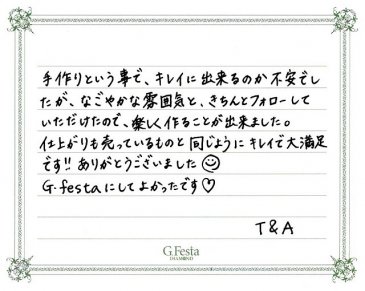 手作りという事で、キレイに出来るのか不安でし
たが、なごやかな雰囲気と、きちんとフォローして
いただけたので、楽しく作ることが出来ました。
仕上がりも売っているものと同じようにキレイで大満足
です!! ありがとうございました☺
G.festaにしてよかったです♡
T&A
G.Festa
DIAMOND